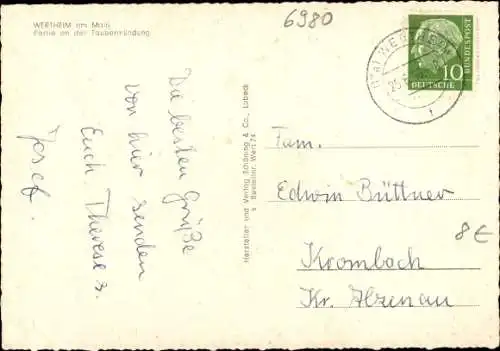 WERTHEIM am Main
Partie an der Taubermündung
6980
Die besten Grüße
von hier senden
Euch Therese s.
Josef.
Hersteller und Verlag Schöning & Co., Lübeck
Bestellnr. Wert 74
10
DEUTSCHE
BUNDESPOST
Fam.
Edwin Büttner
Krombach
Kr. Alzenau
8€